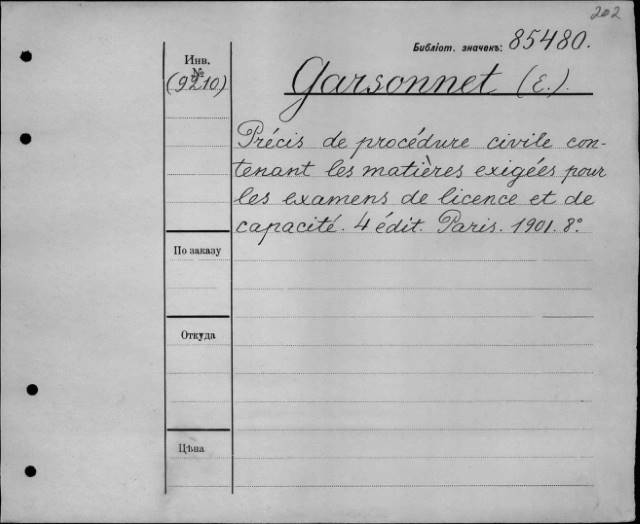 202
Библіот. значекъ: 85480.
Инв.
№
(9210)
Garsonnet (E.).
Précis de procédure civile con-
tenant les matières exigées pour
les examens de licence et de
capacité. 4 édit. Paris. 1901. 8°.
По заказу
Откуда
Цѣна